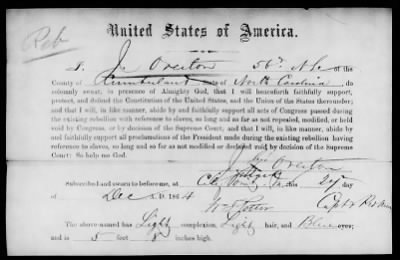 Reb
United States of America.
I, J. Overton 56th N.C. of the
County of Cumberland State of North Carolina, do
solemnly swear, in presence of Almighty God, that I will henceforth faithfully support,
protect, and defend the Constitution of the United States, and the Union of the States thereunder;
and that I will, in like manner, abide by and faithfully support all acts of Congress passed during
the existing rebellion with reference to slaves, so long and so far as not repealed, modified, or held
void by Congress, or by decision of the Supreme Court, and that I will, in like manner, abide by
and faithfully support all proclamations of the President made during the existing rebellion having
reference to slaves, so long and so far as not modified or declared void by decision of the Supreme
Court: So help me God.
Overton
Subscribed and sworn to before me, at City Point Va this 27 day
of Dec 1864
Capt &
The above-named has Light complexion, Light hair, and Blue eyes;
and is 5 feet 8 inches high.